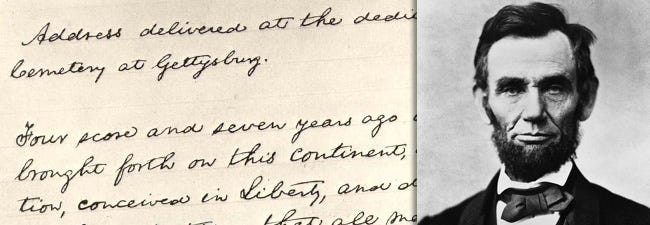 Address delivered at the dedi
Cemetery at Gettysburg.
Four score and seven years ago
brought forth on this continent,
tion, conceived in Liberty, and d
that all m